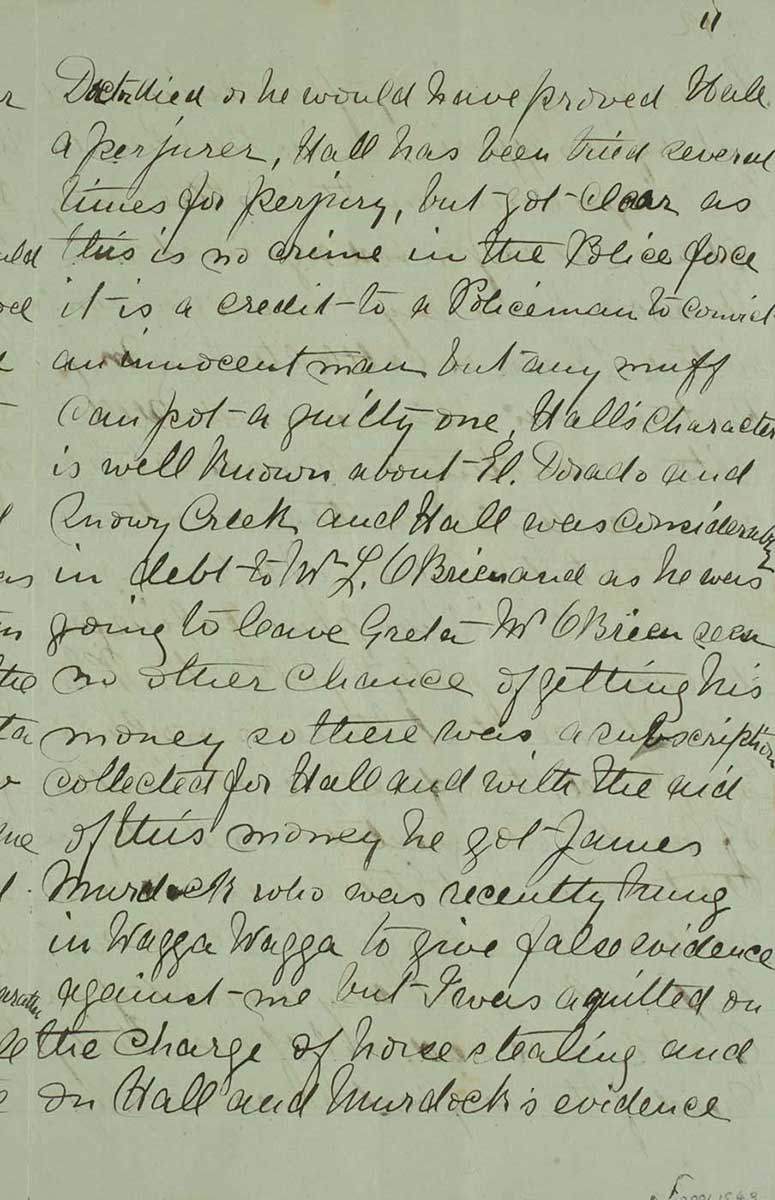 11
Doctor died or he would have proved Hall
a perjurer, Hall has been tried several
times for perjury, but got clear as
this is no crime in the Police force
it is a credit to a Policeman to convict
an innocent man but any muff
can pot a guilty one, Halls character
is well known about El. Dorado and
Snowy Creek and Hall was considerably
in debt to Mr L. OBrien and as he was
going to leave Greta Mr OBrien seen
no other chance of getting his
money so there was a subscription
collected for Hall and with the aid
of this money he got James
Murdock who was recently hung
in Wagga Wagga to give false evidence
against me but I was aquitted on
the charge of horsestealing and
on Hall and Murdock's evidence